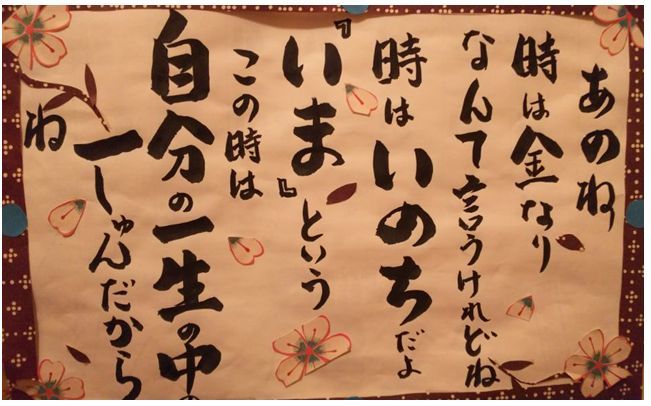 あのね
時は金なり
なんて言うけれどね
時はいのちだよ
『いま』という
この時は
自分の一生の中の
一しゅんだから
ね